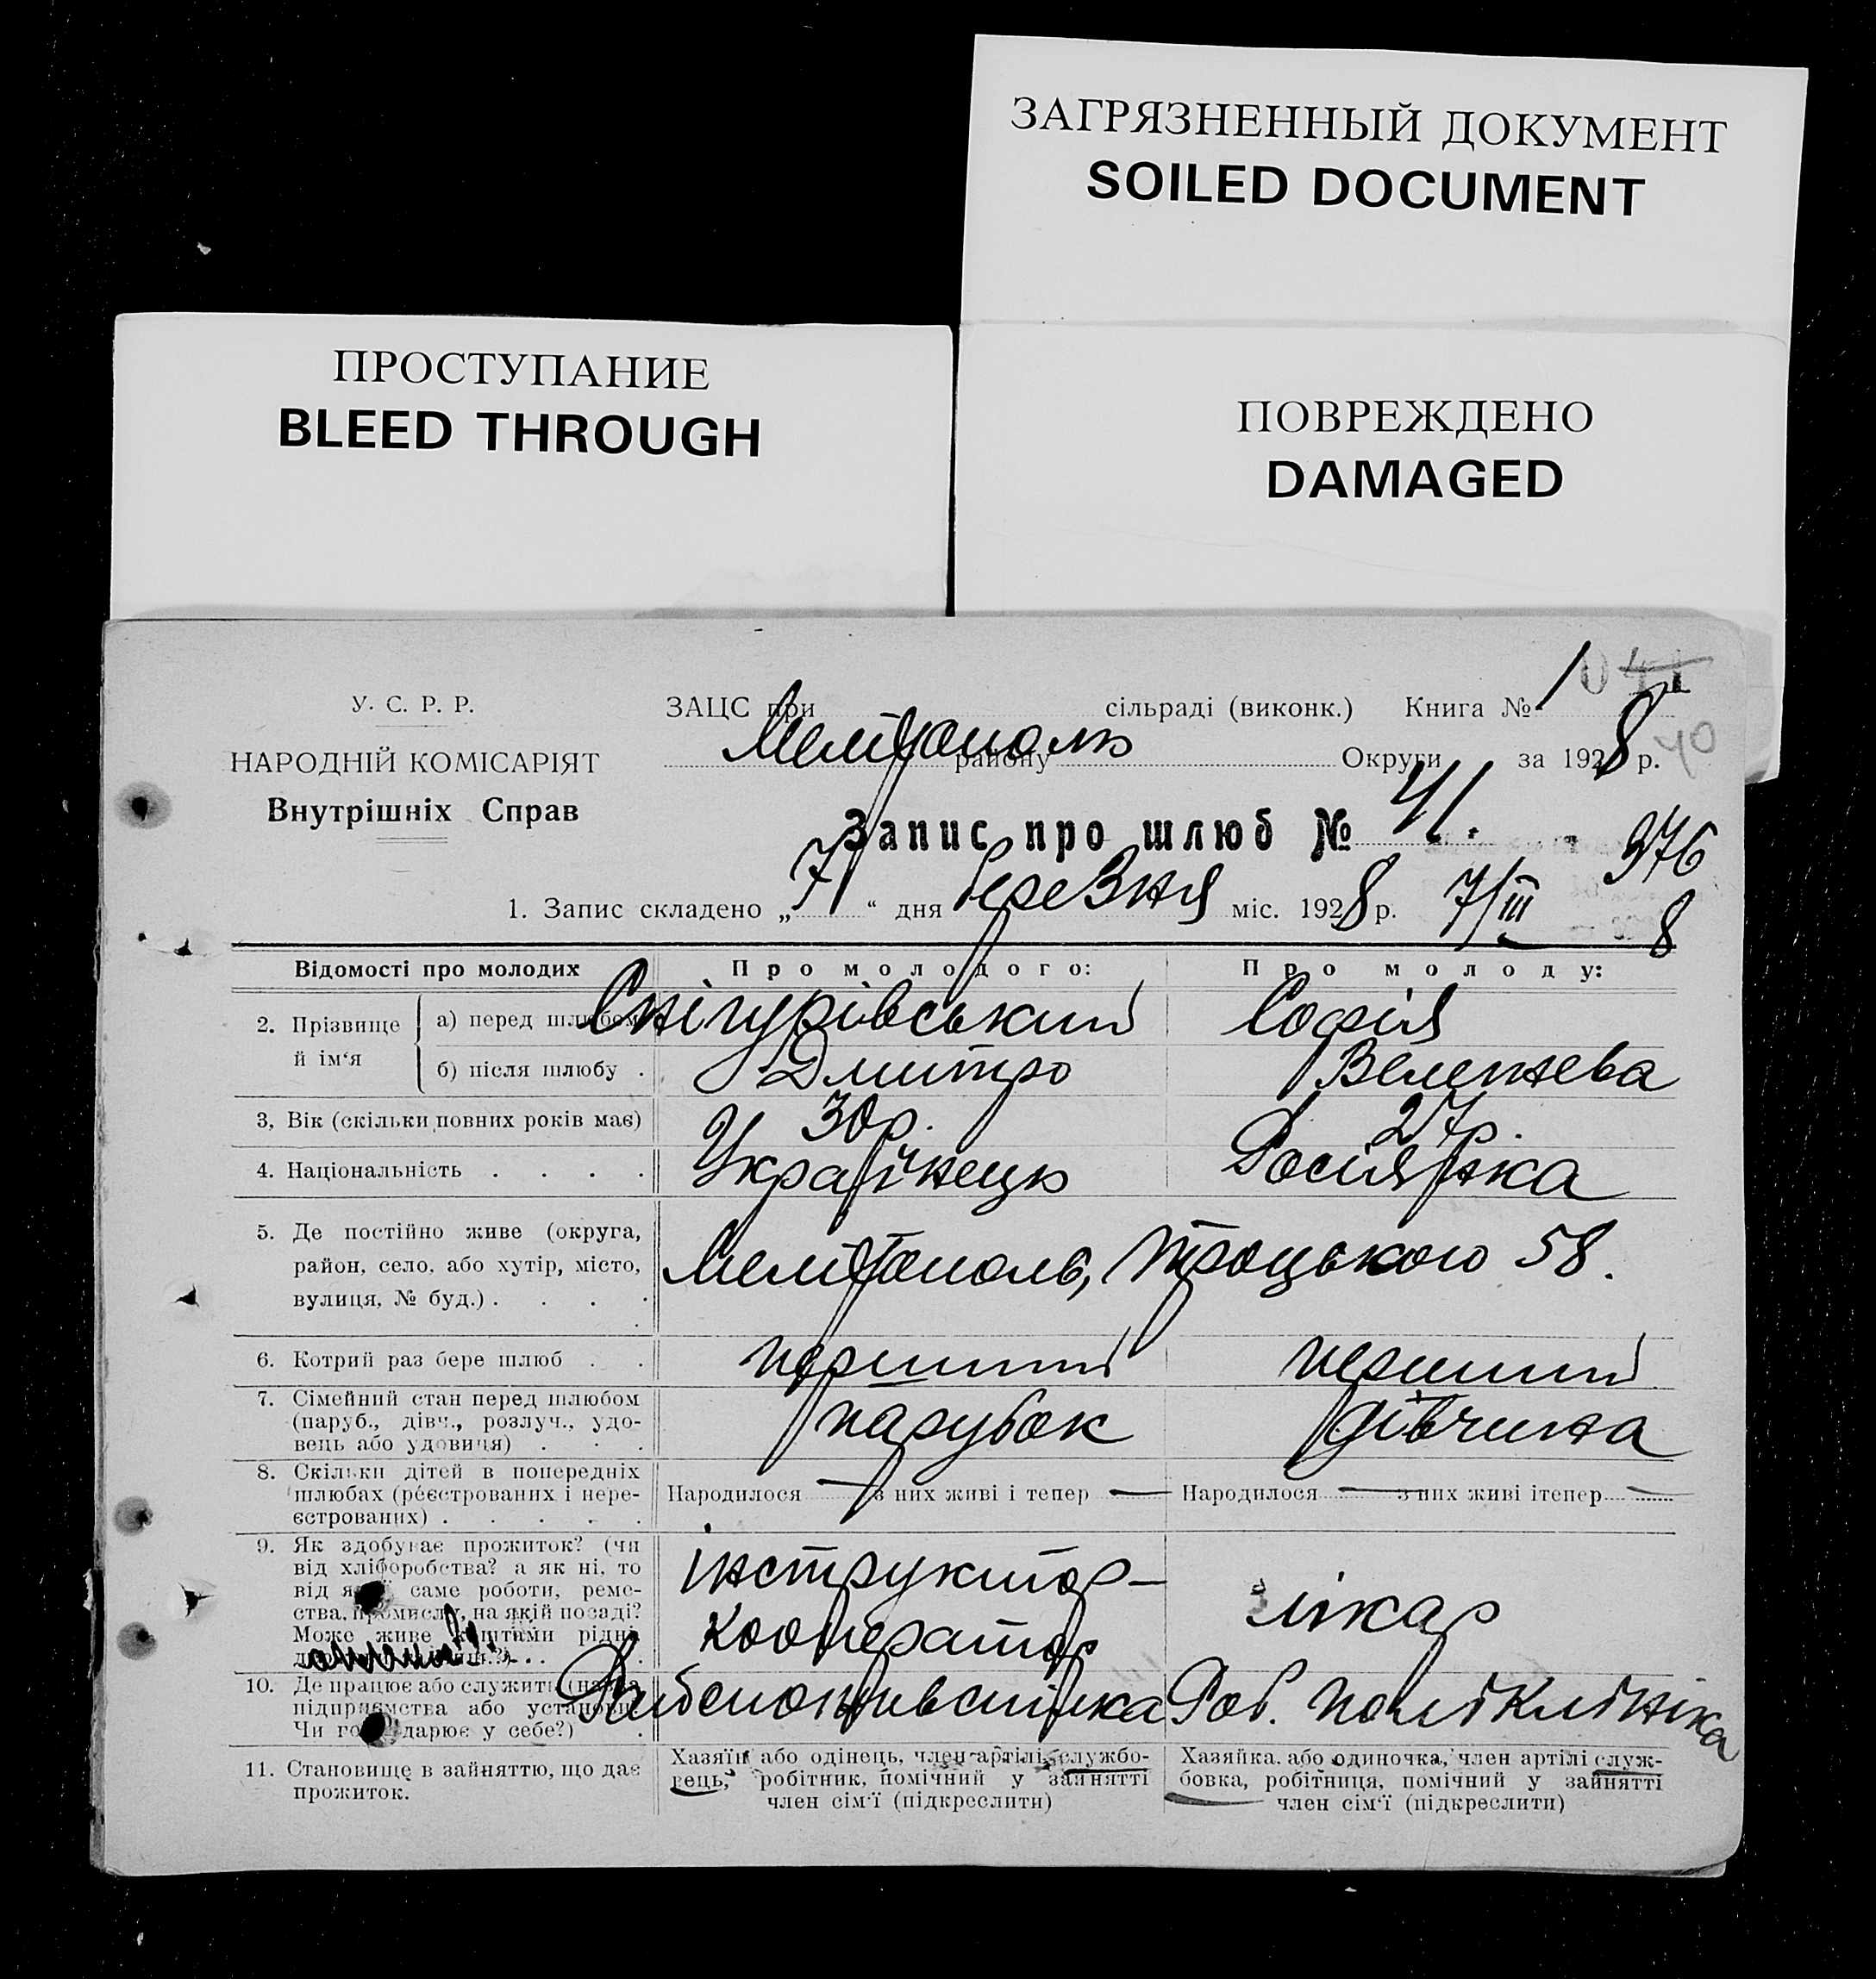 ЗАГРЯЗНЕННЫЙ ДОКУМЕНТ
SOILED DOCUMENT
ПРОСТУПАНИЕ
BLEED THROUGH
ПОВРЕЖДЕНО
DAMAGED
У. С. Р. Р.
НАРОДНІЙ КОМІСАРІЯТ
Внутрішніх Справ
ЗАЦС при сільраді (виконк.) Книга № 1
Мелітополь району Округи за 1928 р. 40
Запис про шлюб № 41.
376
1. Запис складено „7“ дня березня міс. 1928 р. 7/III 8
Відомості про молодих Про молодого: Про молоду:
2. Прізвище й ім‘я
а) перед шлюбом Снігурівський Софія
б) після шлюбу . Дмитро
3, Вік (скільки повних років має) 30 р. 27 р.
4. Національність . . . . Українець Росіянка
5. Де постійно живе (округа,
район, село, або хутір, місто,
вулиця, № буд.) . . . .
Мелітополь, Троцького 58.
6. Котрий раз бере шлюб . . перший перший
7. Сімейний стан перед шлюбом
(паруб., дівч., розлуч., удо-
вець або удовиця) . . .
парубок дівчина
8. Скільки дітей в попередніх
шлюбах (реєстрованих і нере-
єстрованих) . . . . .
Народилося — з них живі і тепер — Народилося — з них живі ітепер —
9. Як здобуває прожиток? (чи
від хліборобства? а як ні, то
від саме роботи, реме-
ства, промислу, на якій посаді?
Може живе коштами рідні,
інструктор-
кооператор
лікар
10. Де працює або служить (назва
підприємства або установи.
Чи у себе?) .
Райспоживспілка Роб. поліклініка
11. Становище в зайняттю, що дає
прожиток.
Хазяїн або одінець, член артілі, службо-
вець, робітник, помічний у зайнятті
член сім‘ї (підкреслити)
Хазяйка. або одиночка, член артілі служ-
бовка, робітниця, помічний у зайнятті
член сім‘ї (підкреслити)